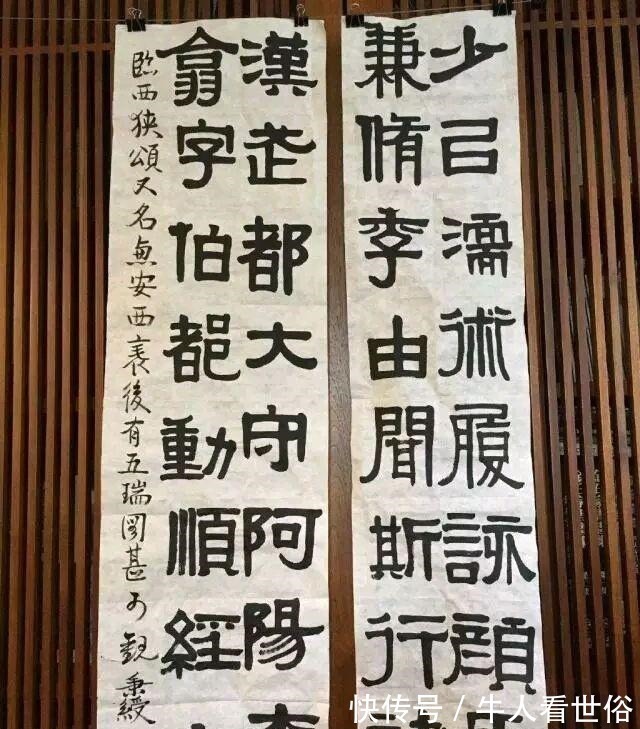 少㠯濡術履詠顏
兼脩季由聞斯行
漢武都大守阿陽
翕字伯都動順經
臨西狹頌又名惠安西表後有五瑞圖甚可觀秉綬
快传号/牛人看世俗